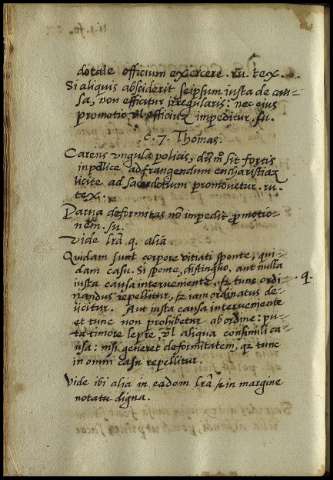 dotale officium exercere. ru. tex.
Si aliquis absciderit seipsum iusta de cau-
sa, non efficitur irregularis: nec eius
promotio, vl officiũ impeditur. su.
c. 7. Thomas.
Carens ungula policis, dũm sit fortis
in pollice ad frangendum eucharistiã
licite ad sacerdotium promovetur. ru.
tex.
Parva deformitas nõ impedit promotio-
nem. su.
Vide lrã q. alia
Quidam sunt corpore vitiati sponte, qui-
dam casu. Si sponte, distinguo, aut nulla
iusta causa interveniente, et tunc ordi-
nandus repellitur, et iam ordinatus de-
iicitur. Aut iusta causa interveniente
et tunc non prohibetur ab ordine: pu-
ta timore lepre, vl aliqua consimili ca-
usa: nisi generet deformitatem, q. tunc
in omni casu repellitur.
q.
Vide ibi alia in eadem lrã et in margine
notatu digna.